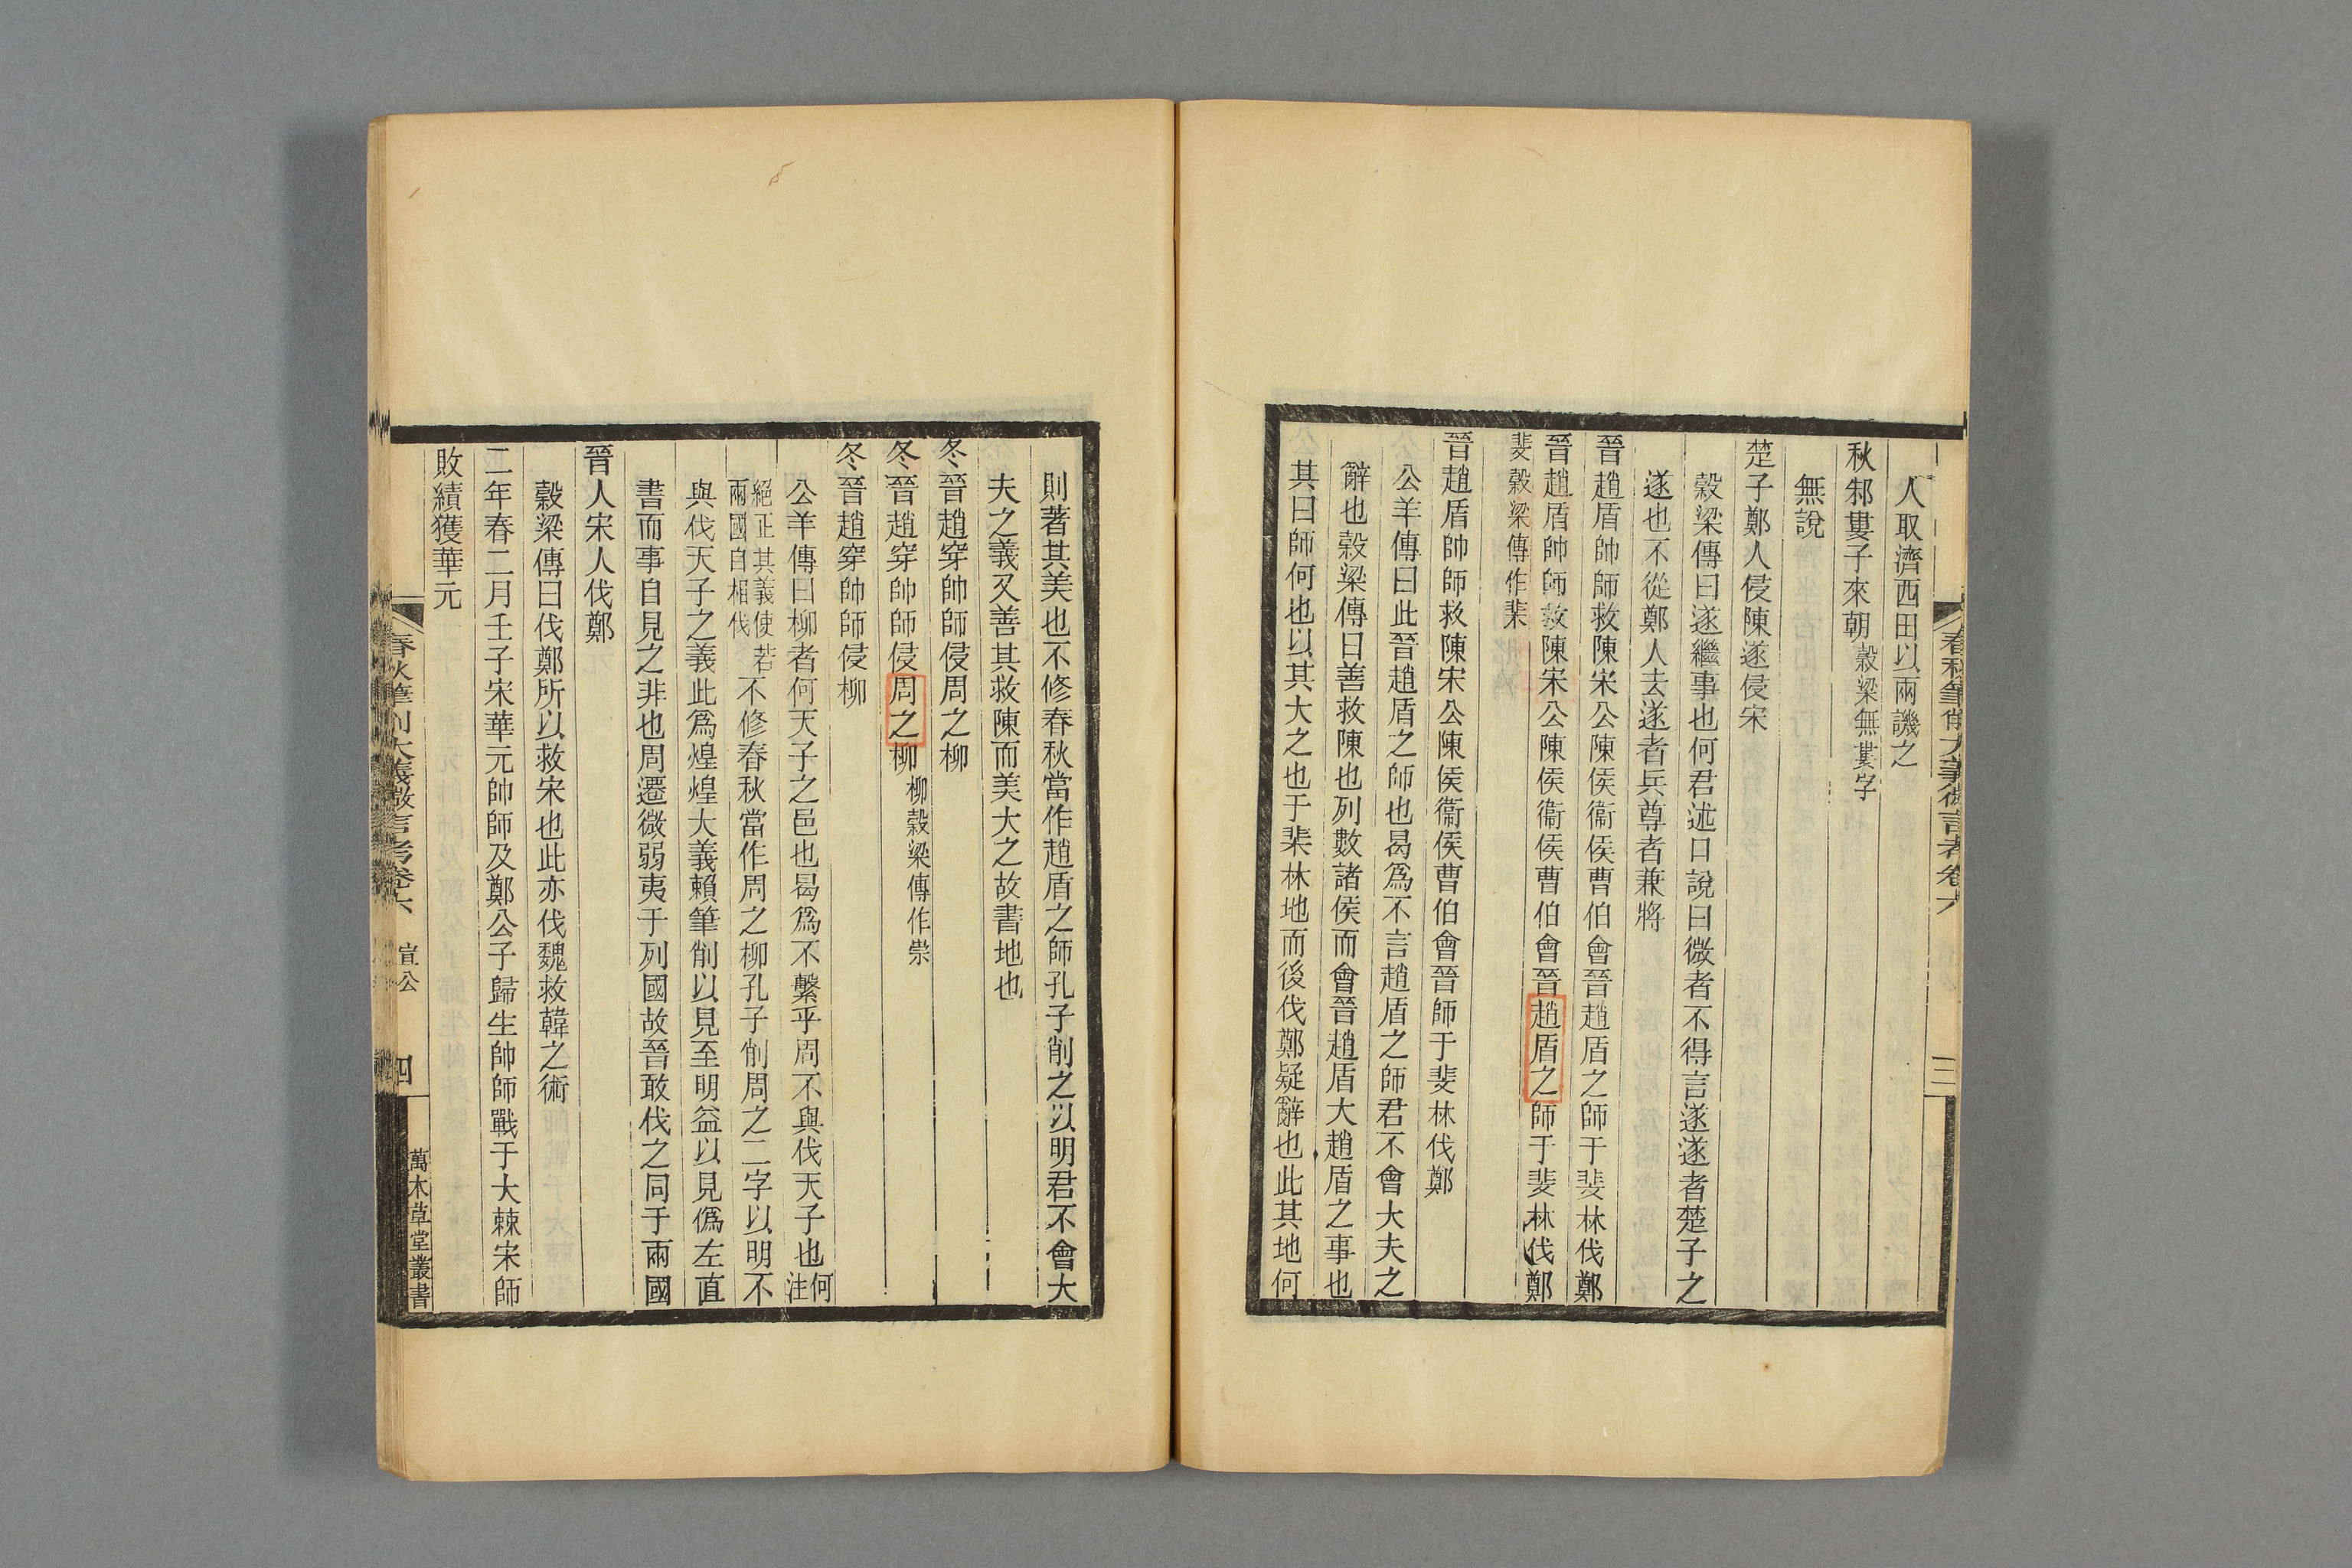 春秋筆削大義微言考卷六
三
人取濟西田以兩譏之
秋邾婁子來朝穀梁無婁字
無說
楚子鄭人侵陳遂侵宋
穀梁傳曰遂繼事也何君述口說曰微者不得言遂遂者楚子之
遂也不從鄭人去遂者兵尊者兼將
晉趙盾帥師救陳宋公陳侯衞侯曹伯會晉趙盾之師于斐林伐鄭
晉趙盾帥師救陳宋公陳侯衞侯曹伯會晉趙盾之師于斐林伐鄭
斐穀梁傳作棐
晉趙盾帥師救陳宋公陳侯衞侯曹伯會晉師于斐林伐鄭
公羊傳曰此晉趙盾之師也曷爲不言趙盾之師君不會大夫之
辭也穀梁傳曰善救陳也列數諸侯而會晉趙盾大趙盾之事也
其曰師何也以其大之也于棐林地而後伐鄭疑辭也此其地何
則著其美也不修春秋當作趙盾之師孔子削之以明君不會大
夫之義又善其救陳而美大之故書地也
冬晉趙穿帥師侵周之柳
冬晉趙穿帥師侵周之柳柳穀梁傳作崇
冬晉趙穿帥師侵柳
公羊傳曰柳者何天子之邑也曷爲不繫乎周不與伐天子也何注
絕正其義使若兩國自相伐不修春秋當作周之柳孔子削周之二字以明不
與伐天子之義此爲煌煌大義賴筆削以見至明益以見僞左直
書而事自見之非也周遷微弱夷于列國故晉敢伐之同于兩國
晉人宋人伐鄭
穀梁傳曰伐鄭所以救宋也此亦伐魏救韓之術
二年春二月壬子宋華元帥師及鄭公子歸生帥師戰于大棘宋師
敗績獲華元
春秋筆削大義微言考卷六 宣公 四 萬木草堂叢書